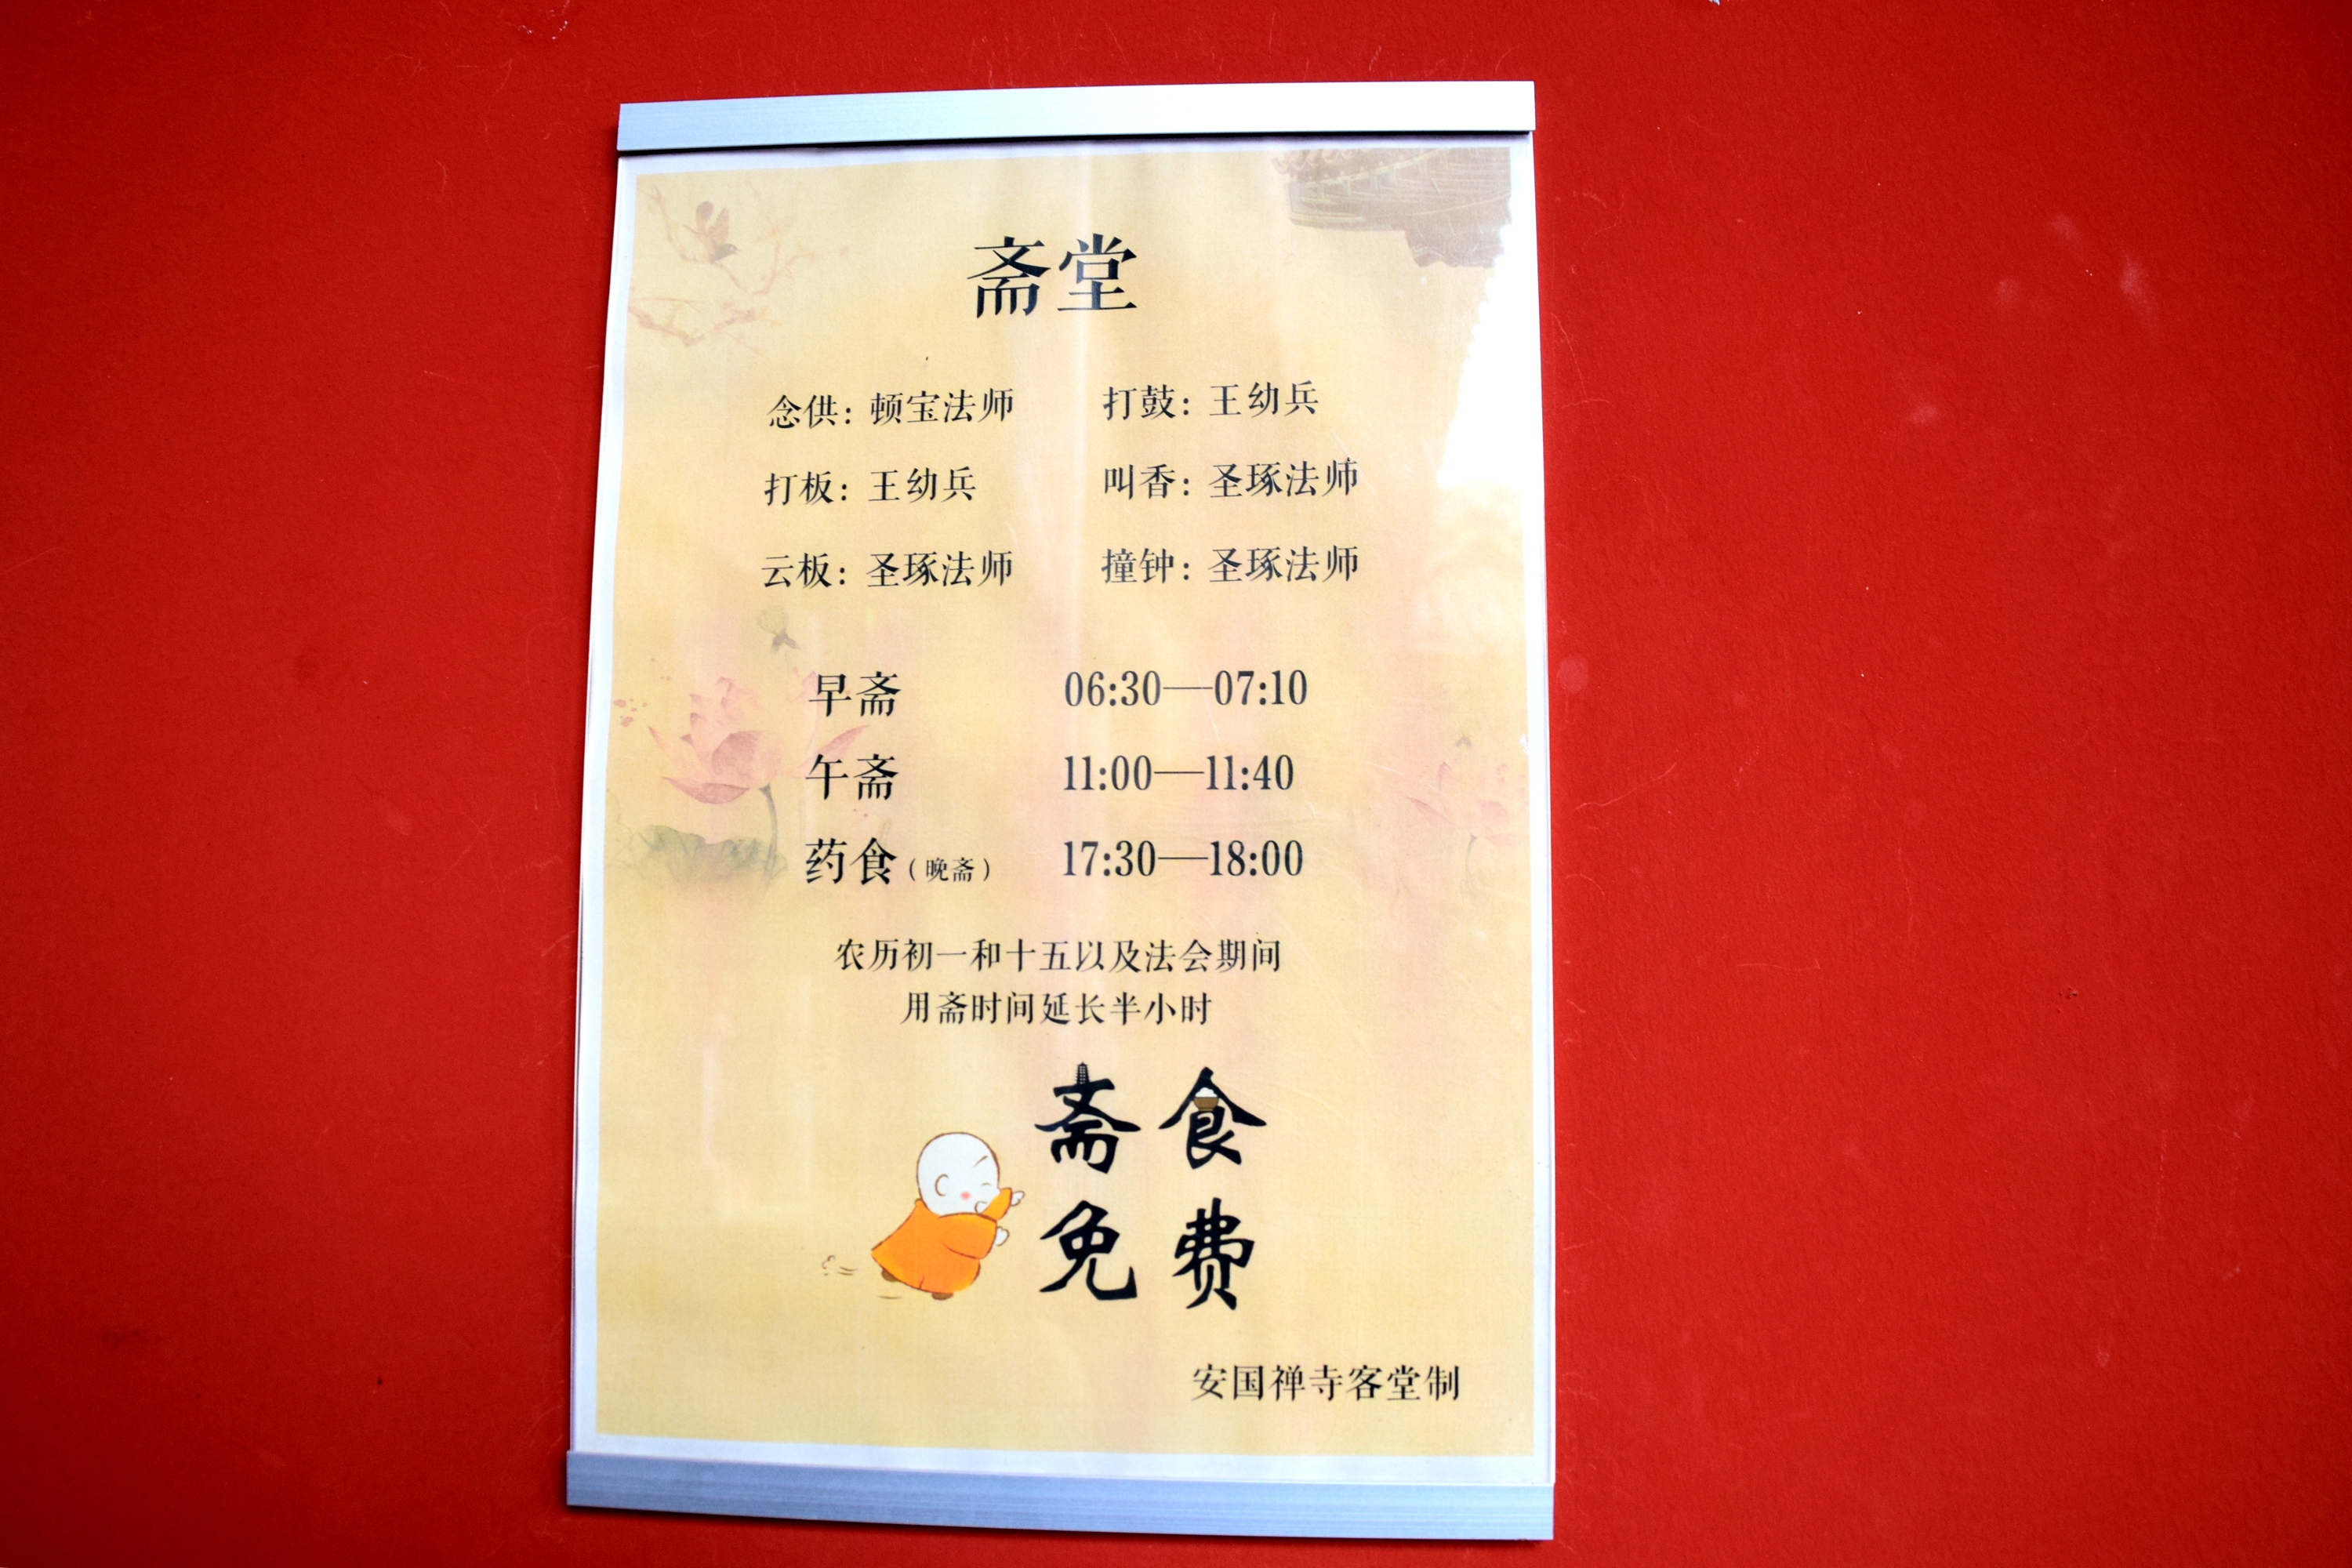 斋堂
念供：顿宝法师 打鼓：王幼兵
打板：王幼兵 叫香：圣琢法师
云板：圣琢法师 撞钟：圣琢法师
早斋 06:30—07:10
午斋 11:00—11:40
药食（晚斋） 17:30—18:00
农历初一和十五以及法会期间
用斋时间延长半小时
斋食
免费
安国禅寺客堂制